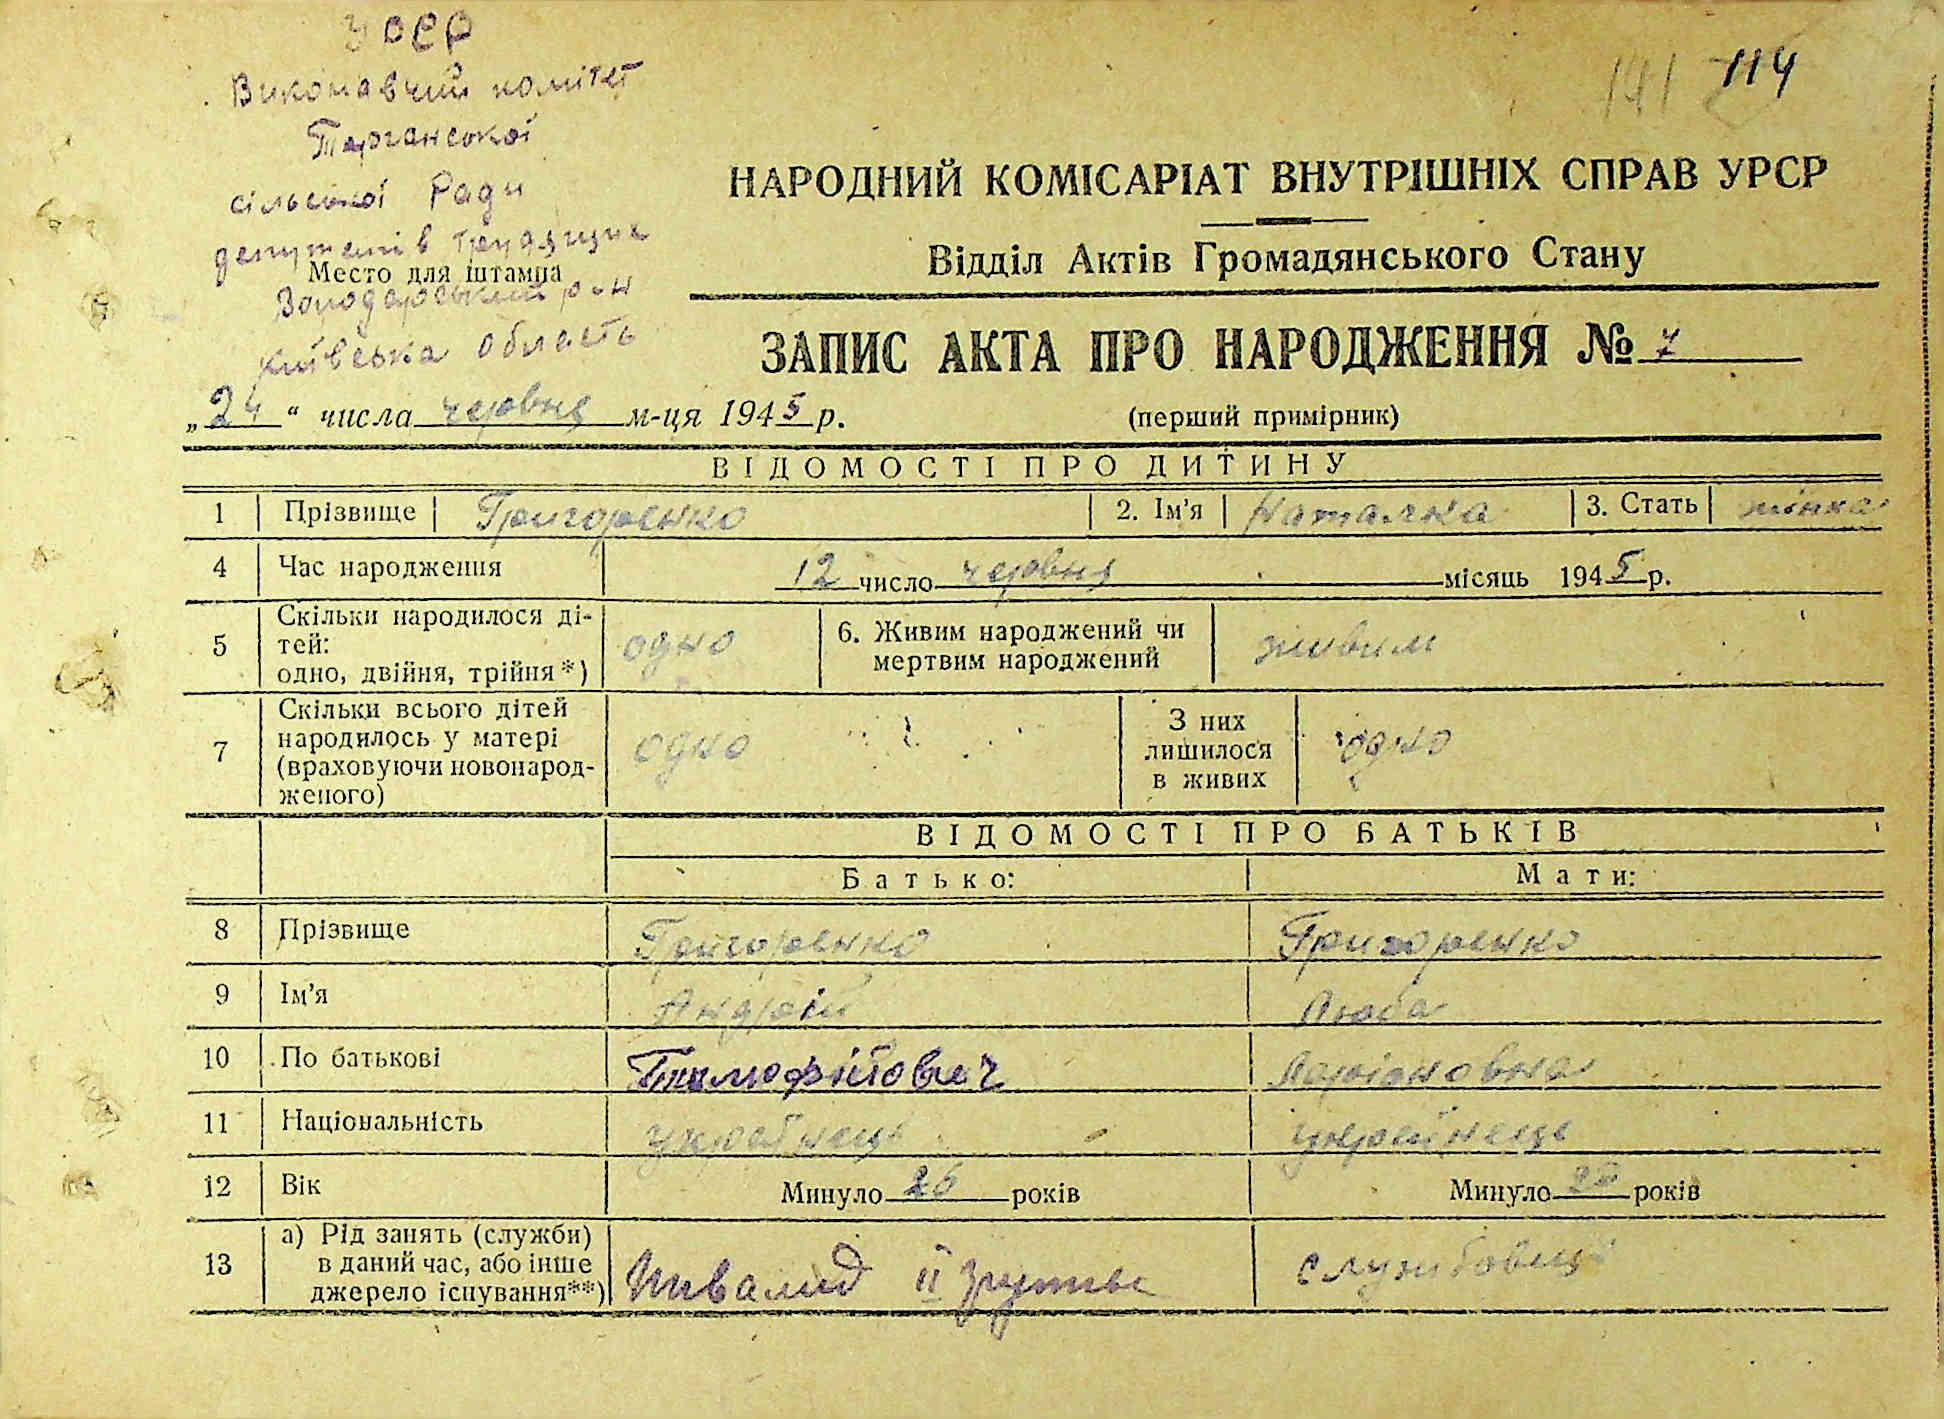 УРСР
Виконавчий комітет
Тарганської
сільської Ради
депутатів трудящих
Место для штампа
Володарський р-н
Київська область
141 114
НАРОДНИЙ КОМІСАРІАТ ВНУТРІШНІХ СПРАВ УРСР
Відділ Актів Громадянського Стану
ЗАПИС АКТА ПРО НАРОДЖЕННЯ № 7
„24“ числа червня м-ця 1945 р.
(перший примірник)
ВІДОМОСТІ ПРО ДИТИНУ
1 Прізвище Григоренко 2. Ім'я Наталка 3. Стать жінка
4 Час народження 12 число червня місяць 1945 р.
5 Скільки народилося ді-
тей:
одно, двійня, трійня*) одно 6. Живим народжений чи
мертвим народжений живим
7 Скільки всього дітей
народилось у матері
(враховуючи новонарод-
женого) одно З них
лишилося
в живих одно
ВІДОМОСТІ ПРО БАТЬКІВ
Батько: Мати:
8 Прізвище Григоренко Григоренко
9 Ім'я Андрій Люба
10 По батькові Тимофійович Маріоновна
11 Національність українець українець
12 Вік Минуло 26 років Минуло 22 років
13 а) Рід занять (служби)
в даний час, або інше
джерело існування**) Инвалид II групы службовець